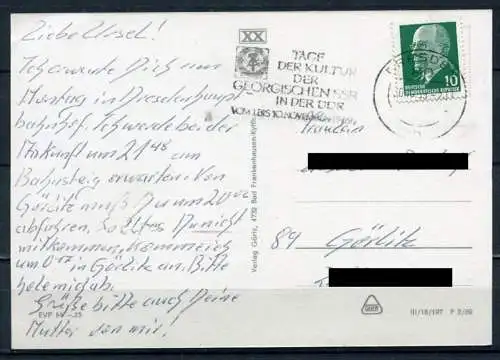 Liebe Ursel!
Ich erwarte Dich am
Montag in Dresden Haupt-
bahnhof. Ich werde bei der
Ankunft um 21 48 am
Bahnsteig erwarten. Von
Görlitz mußt Du um 20 02
abfahren. Solltest Du nicht
mitkommen, komme ich
um 0 in Görlitz an. Bitte
hole mich ab.
Grüße bitte auch Deine
Mutter von mir!
EVP M -,25
Verlag Görtz, 4732 Bad Frankenhausen/Kyffh.
XX
TAGE
DER KULTUR
DER
GEORGISCHEN SSR
IN DER DDR
VOM 1. BIS 10. NOVEMBER 1969
DEUTSCHE
DEMOKRATISCHE REPUBLIK
10
Fräulein
89 Görlitz
III/18/197 P 2/69